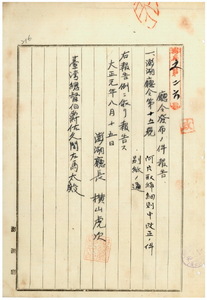 廳令發布ノ件報告
一、澎湖廳令第十五號 阿片取締細則中改正ノ件
別紙ノ通
右報告例ニ依リ報告ス
大正元年八月十五日
澎湖廳長 横山虎次
臺灣總督伯爵佐久間左馬太殿